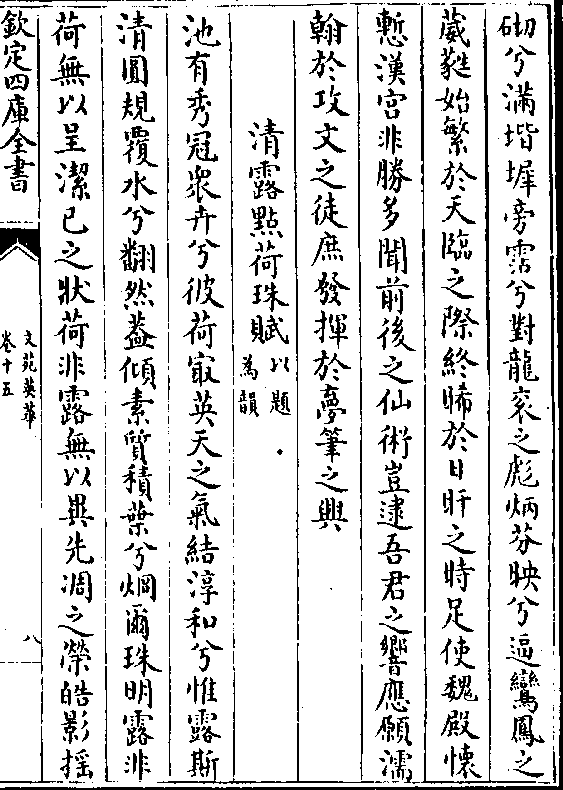 砌兮滿堦墀旁霑兮對龍衮之彪炳芬映兮逼鸞鳳之
葳蕤始繁於天臨之際終晞於日旰之時足使魏殿懷
慙漢宫非勝多聞前後之仙術豈逮吾君之響應願濡
翰於攻文之徒庶發揮於夢筆之興
清露點荷珠賦以題為韻
池有秀冠衆卉兮彼荷㝡英天之氣結淳和兮惟露斯
清圓規覆水兮翻然葢傾素質積葉兮烱爾珠明露非
荷無以呈潔已之狀荷非露無以異先凋之榮皓影揺
欽定四庫全書
文苑英華
卷十五
八